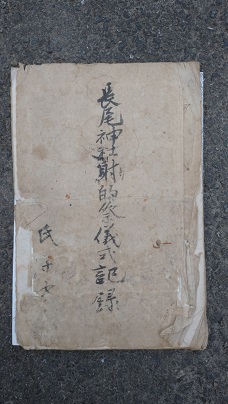 長尾神社射的祭儀式記録
氏子